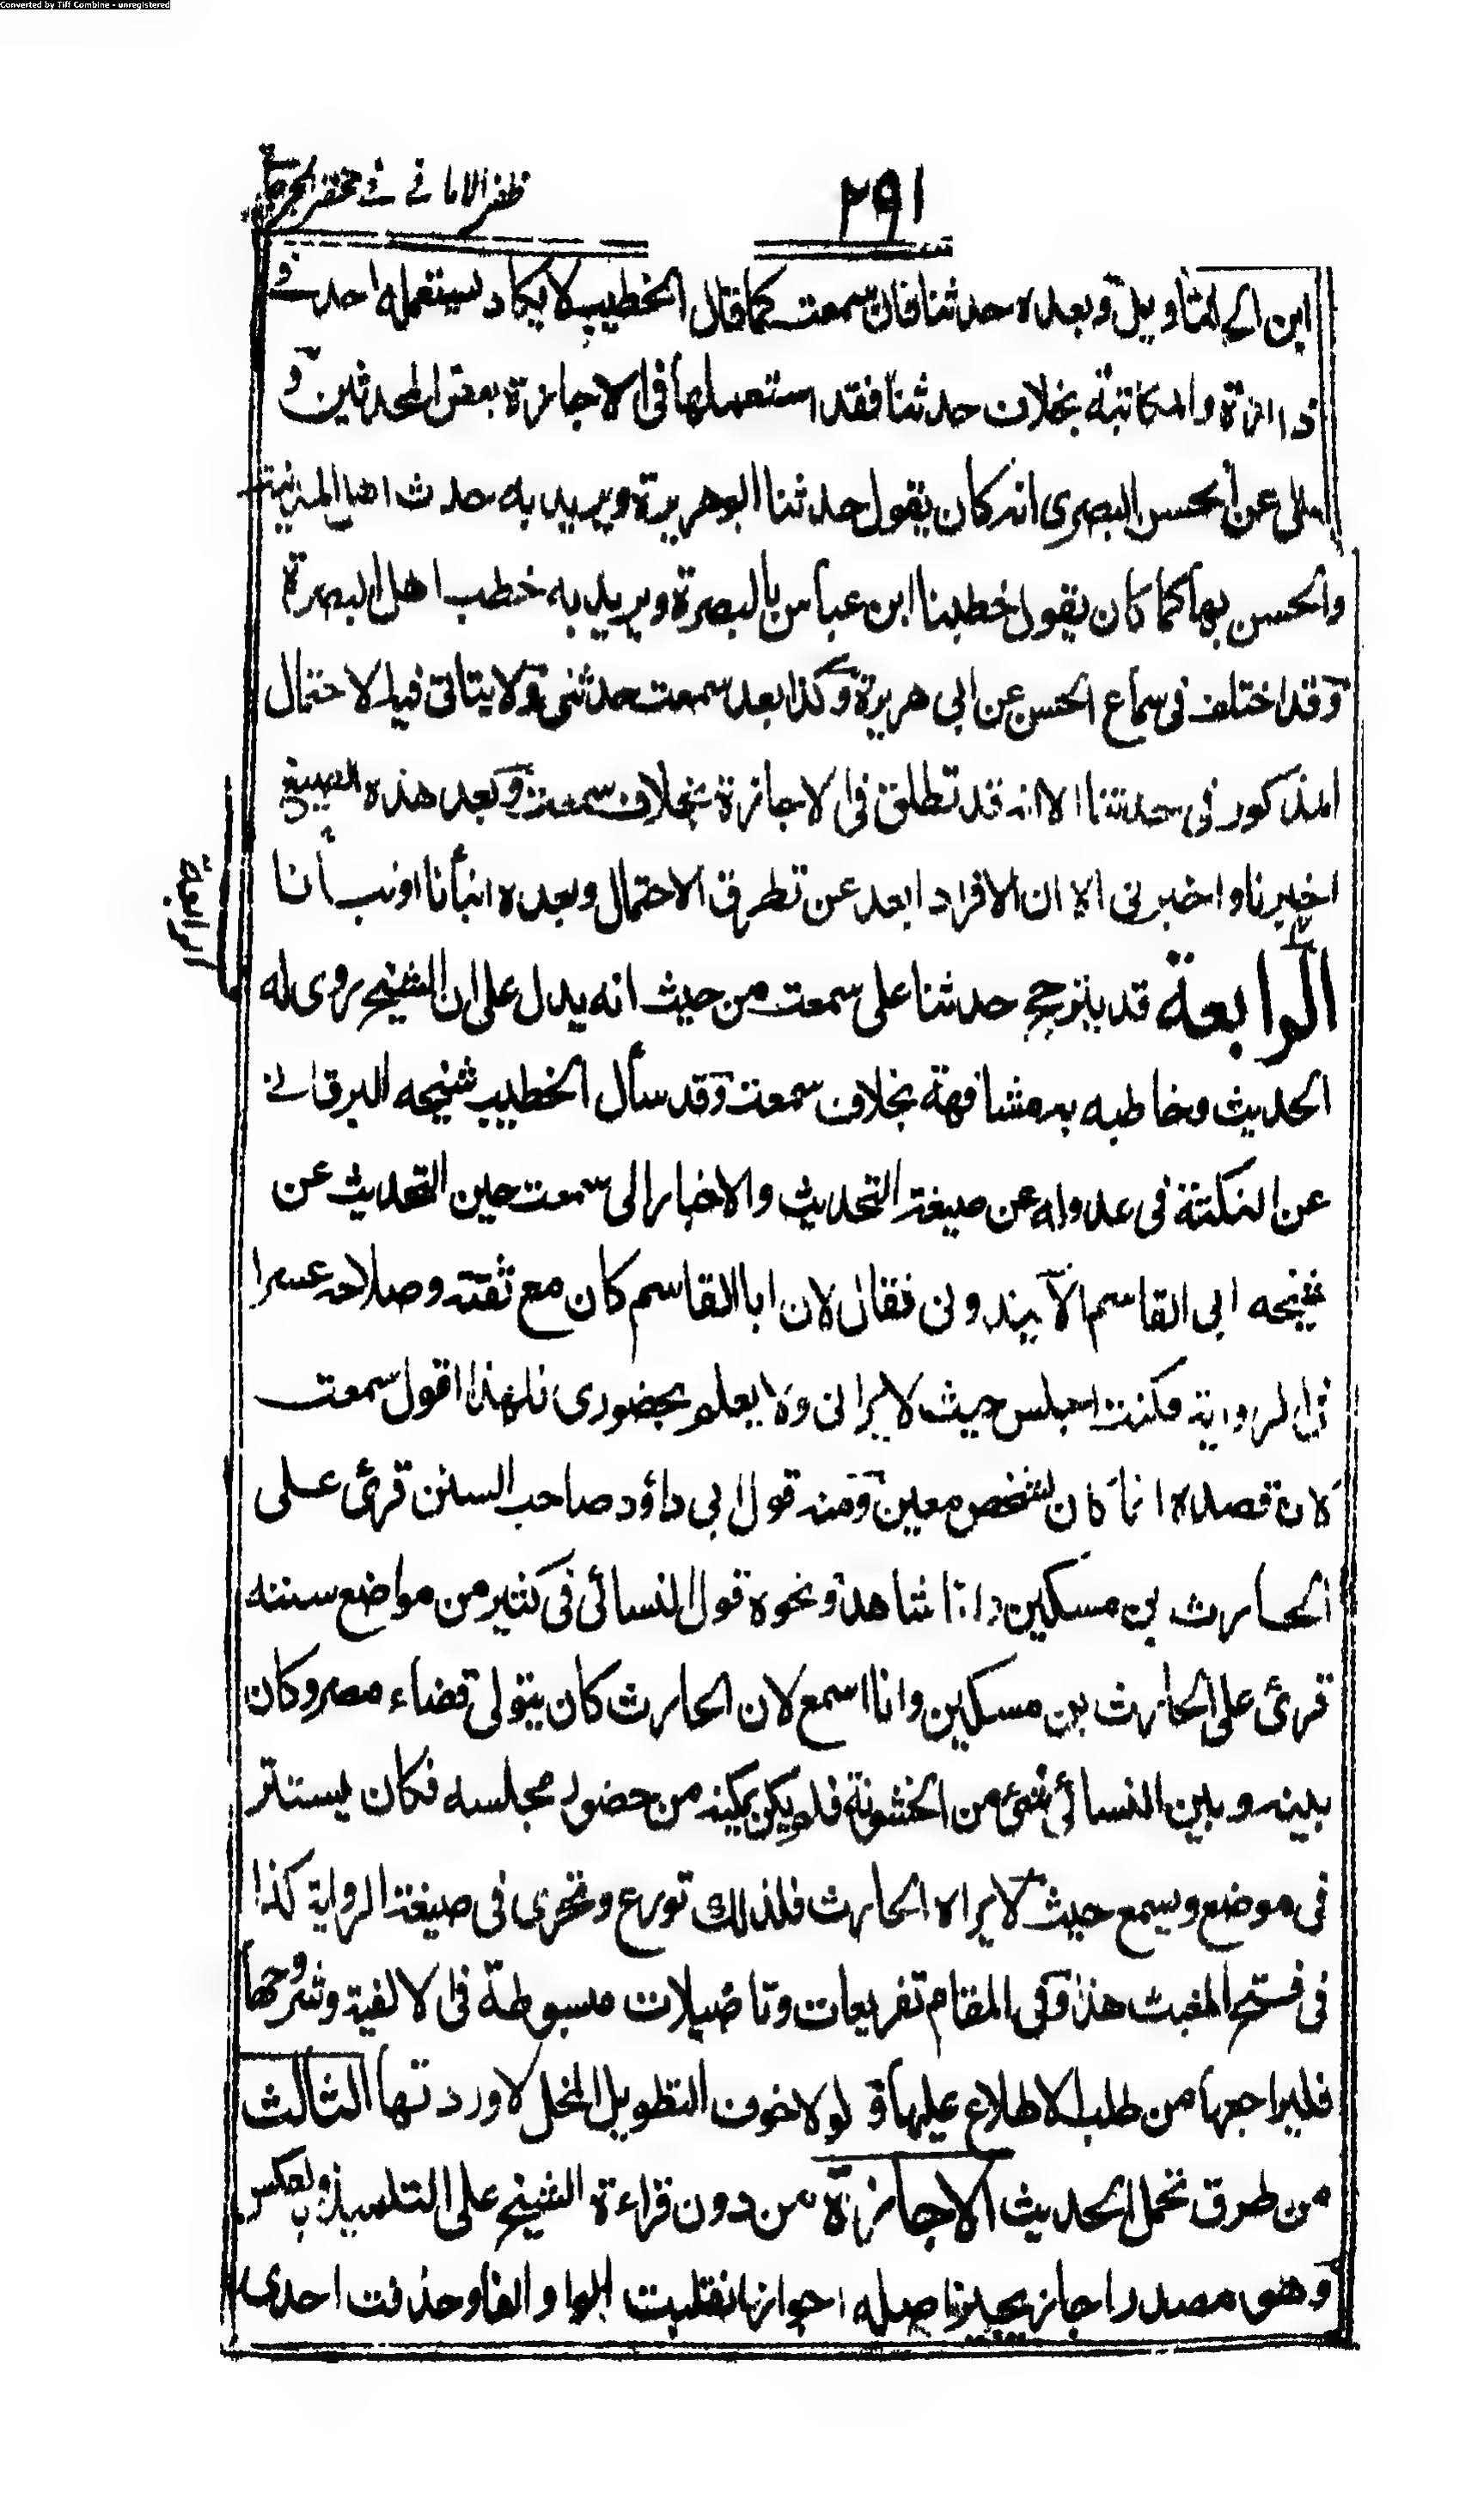 Converted by Tiff Combine - unregistered
ظفر الامانے فے مختصر الجرجانی
۲۹۱
این الے التاویل وبعده حدثنا فان سمعت كما قال الخطیب لا یكاد یستعمله احد فے
والمكاتبة بخلاف حدثنا فقد استعملها فی الاجازة بعض المحدثین و
عن الحسن البصری انه كان یقول حدثنا ابو هریرة ویرید به حدث اهل المدینة
والحسن بها كما كان یقول خطبنا ابن عباس بالبصرة ویرید به خطب اهل البصرة
وقد اختلف فی سماع الحسن عن ابی هریرة وكذا بعد سمعت حدثنی ولا یتاتی فیه الاحتمال
المذكور فی حدثنا الا انه قد تطلق فی الاجازة بخلاف سمعت وبعد هذه الصیغ
اخبرنا واخبرنی الا ان الافراد ابعد عن تطرق الاحتمال وبعده انبأنا او نبأنا
الرابعة
الرابعة قد یترجح حدثنا علی سمعت من حیث انه یدل علی ان الشیخ روی له
الحدیث وخاطبه به مشافهة بخلاف سمعت وقد سأل الخطیب شیخه البرقانے
عن النكتة فی عدوله عن صیغة التحدیث والاخبار الی سمعت حین التحدیث عن
شیخه ابی القاسم الآبندونی فقال لان ابا القاسم كان مع ثقته وصلاحه عسرا
فی الروایة فكنت اجلس حیث لا یرانی ولا یعلم بحضوری فلهذا اقول سمعت
لان قصده انما كان لشخص معین ومنه قول ابی داؤد صاحب السنن قرئ علی
الحارث بن مسكین وانا شاهد ونحوه قول النسائی فی كثیر من مواضع سننه
قرئ علی الحارث بن مسكین وانا اسمع لان الحارث كان یتولی قضاء مصر وكان
بینه وبین النسائی شئ من الخشونة فلم یكن یمكنه من حضور مجلسه فكان یستتر
فی موضع ویسمع حیث لا یراه الحارث فلذلك تورع وتحری فی صیغة الروایة كذا
فی فتح المغیث هذا وفی المقام تفریعات وتاصیلات مبسوطة فی الالفیة وشروحها
فلیراجعها من طلب الاطلاع علیها ولو لا خوف التطویل المخل لاوردتها الثالث
من طرق تحمل الحدیث الاجازة من دون قراءة الشیخ علی التلمیذ وبعكس
وهی مصدر اجاز یجیز اصله اجوازا فقلبت الواو الفا وحذفت احدی